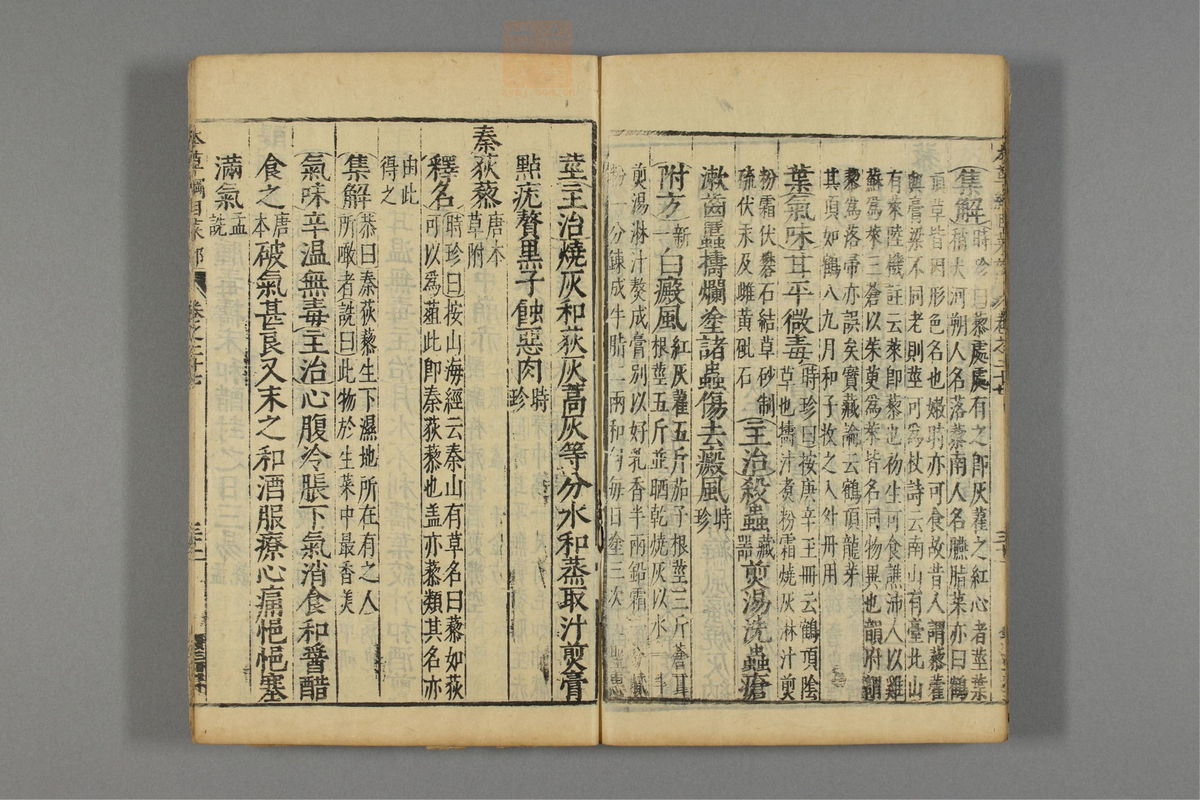 集解時珍曰藜處處有之即灰藋之紅心者莖葉
稍大河朔人名落藜南人名臙脂菜亦曰鶴
頂草皆因形色名也嫩時亦可食故昔人謂藜藿
與膏粱不同老則莖可為杖詩云南山有臺北山
有萊陸機註云萊即藜也初生可食譙沛人以雞
蘇為萊三蒼以茱萸為萊皆名同物異也韻府謂
藜為落帚亦誤矣寶藏論云鶴頂龍芽
其頂如鶴八九月和子收之入外丹用
葉氣味甘平微毒時珍曰按庚辛玉冊云鶴頂陰
草也擣汁煑粉霜燒灰淋汁煎
粉霜伏礬石結草砂制
硫伏汞及雌黄砒石
主治殺蟲藏器煎湯洗蟲瘡
漱齒䘌擣爛塗諸蟲傷去癜風時珍
附方新一白癜風紅灰藋五斤茄子根莖三斤蒼耳
根莖五斤並晒乾燒灰以水一斗
煎湯淋汁熬成膏別以好乳香半兩鉛霜
粉一分鍊成牛脂二兩和勻每日塗三次
莖主治燒灰和荻灰蒿灰等分水和蒸取汁煎膏
點疣贅黑子蝕惡肉時珍
秦荻藜唐本草附
釋名時珍曰按山海經云秦山有草名曰藜如荻
可以為葅此即秦荻藜也盖亦藜類其名亦
由此
得之
集解恭曰秦荻藜生下濕地所在有之人
所噉者詵曰此物於生菜中最香美
氣味辛温無毒主治心腹冷脹下氣消食和醬醋
食之唐本破氣甚良又末之和酒服療心痛悒悒塞
滿氣孟詵